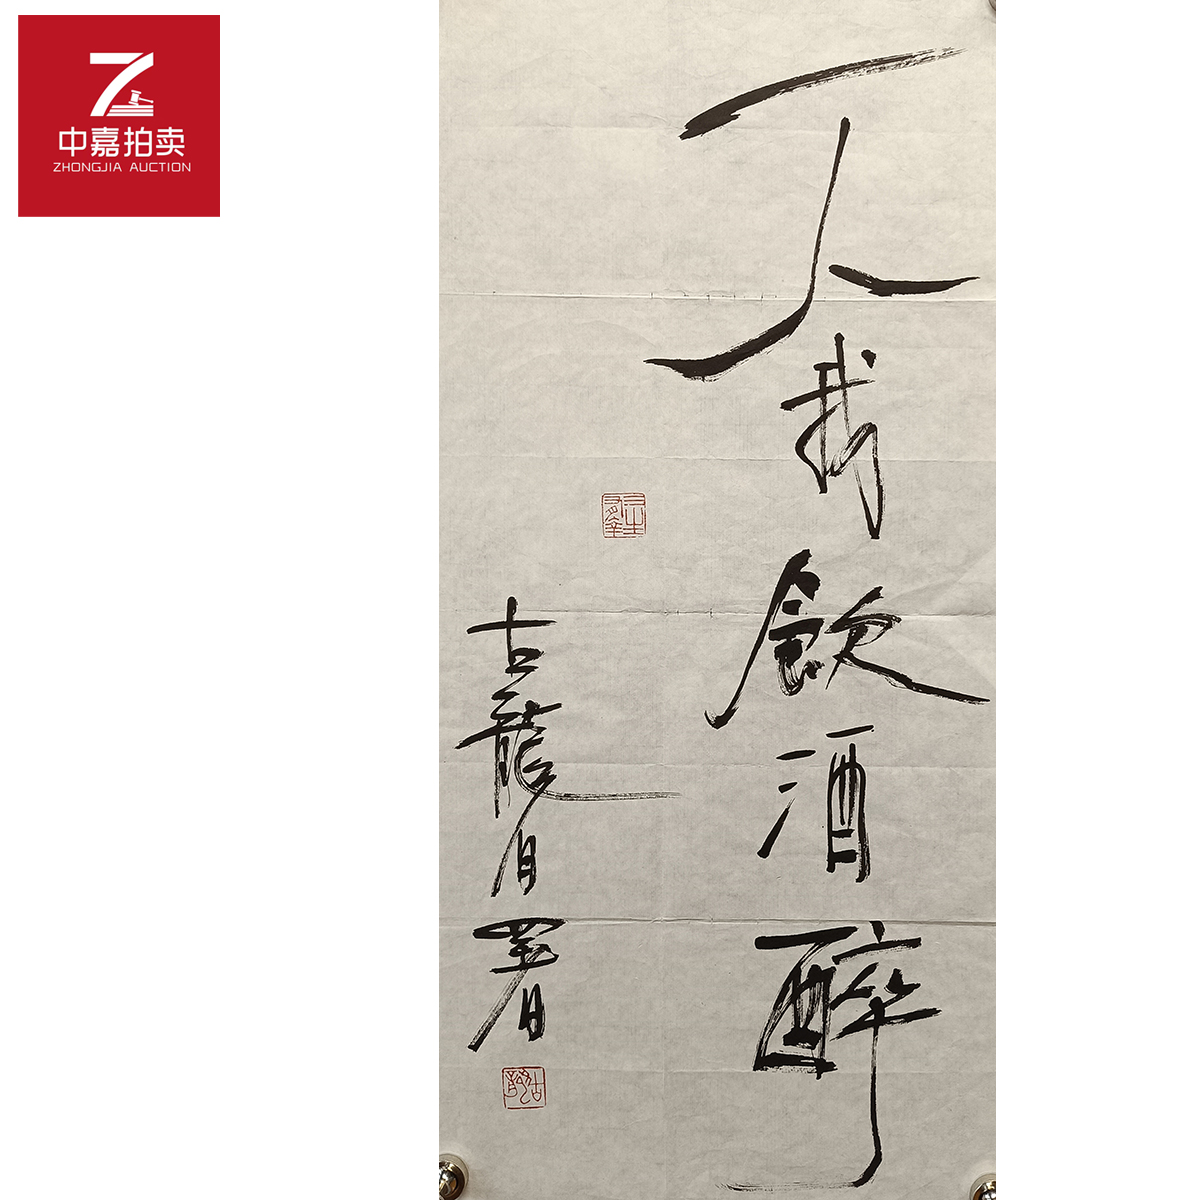 中嘉拍卖
ZHONGJIA AUCTION
我飲酒醉
古龍自署